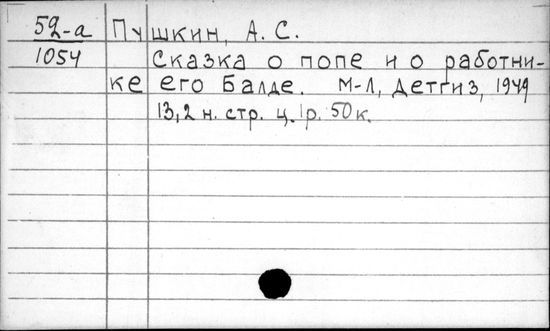 52-а Пушкин, А. С.
1054 Сказка о попе и о работни-
ке его Балде. М-Л, Детгиз, 1949
13,2 н. стр. ц. 1р. 50к.